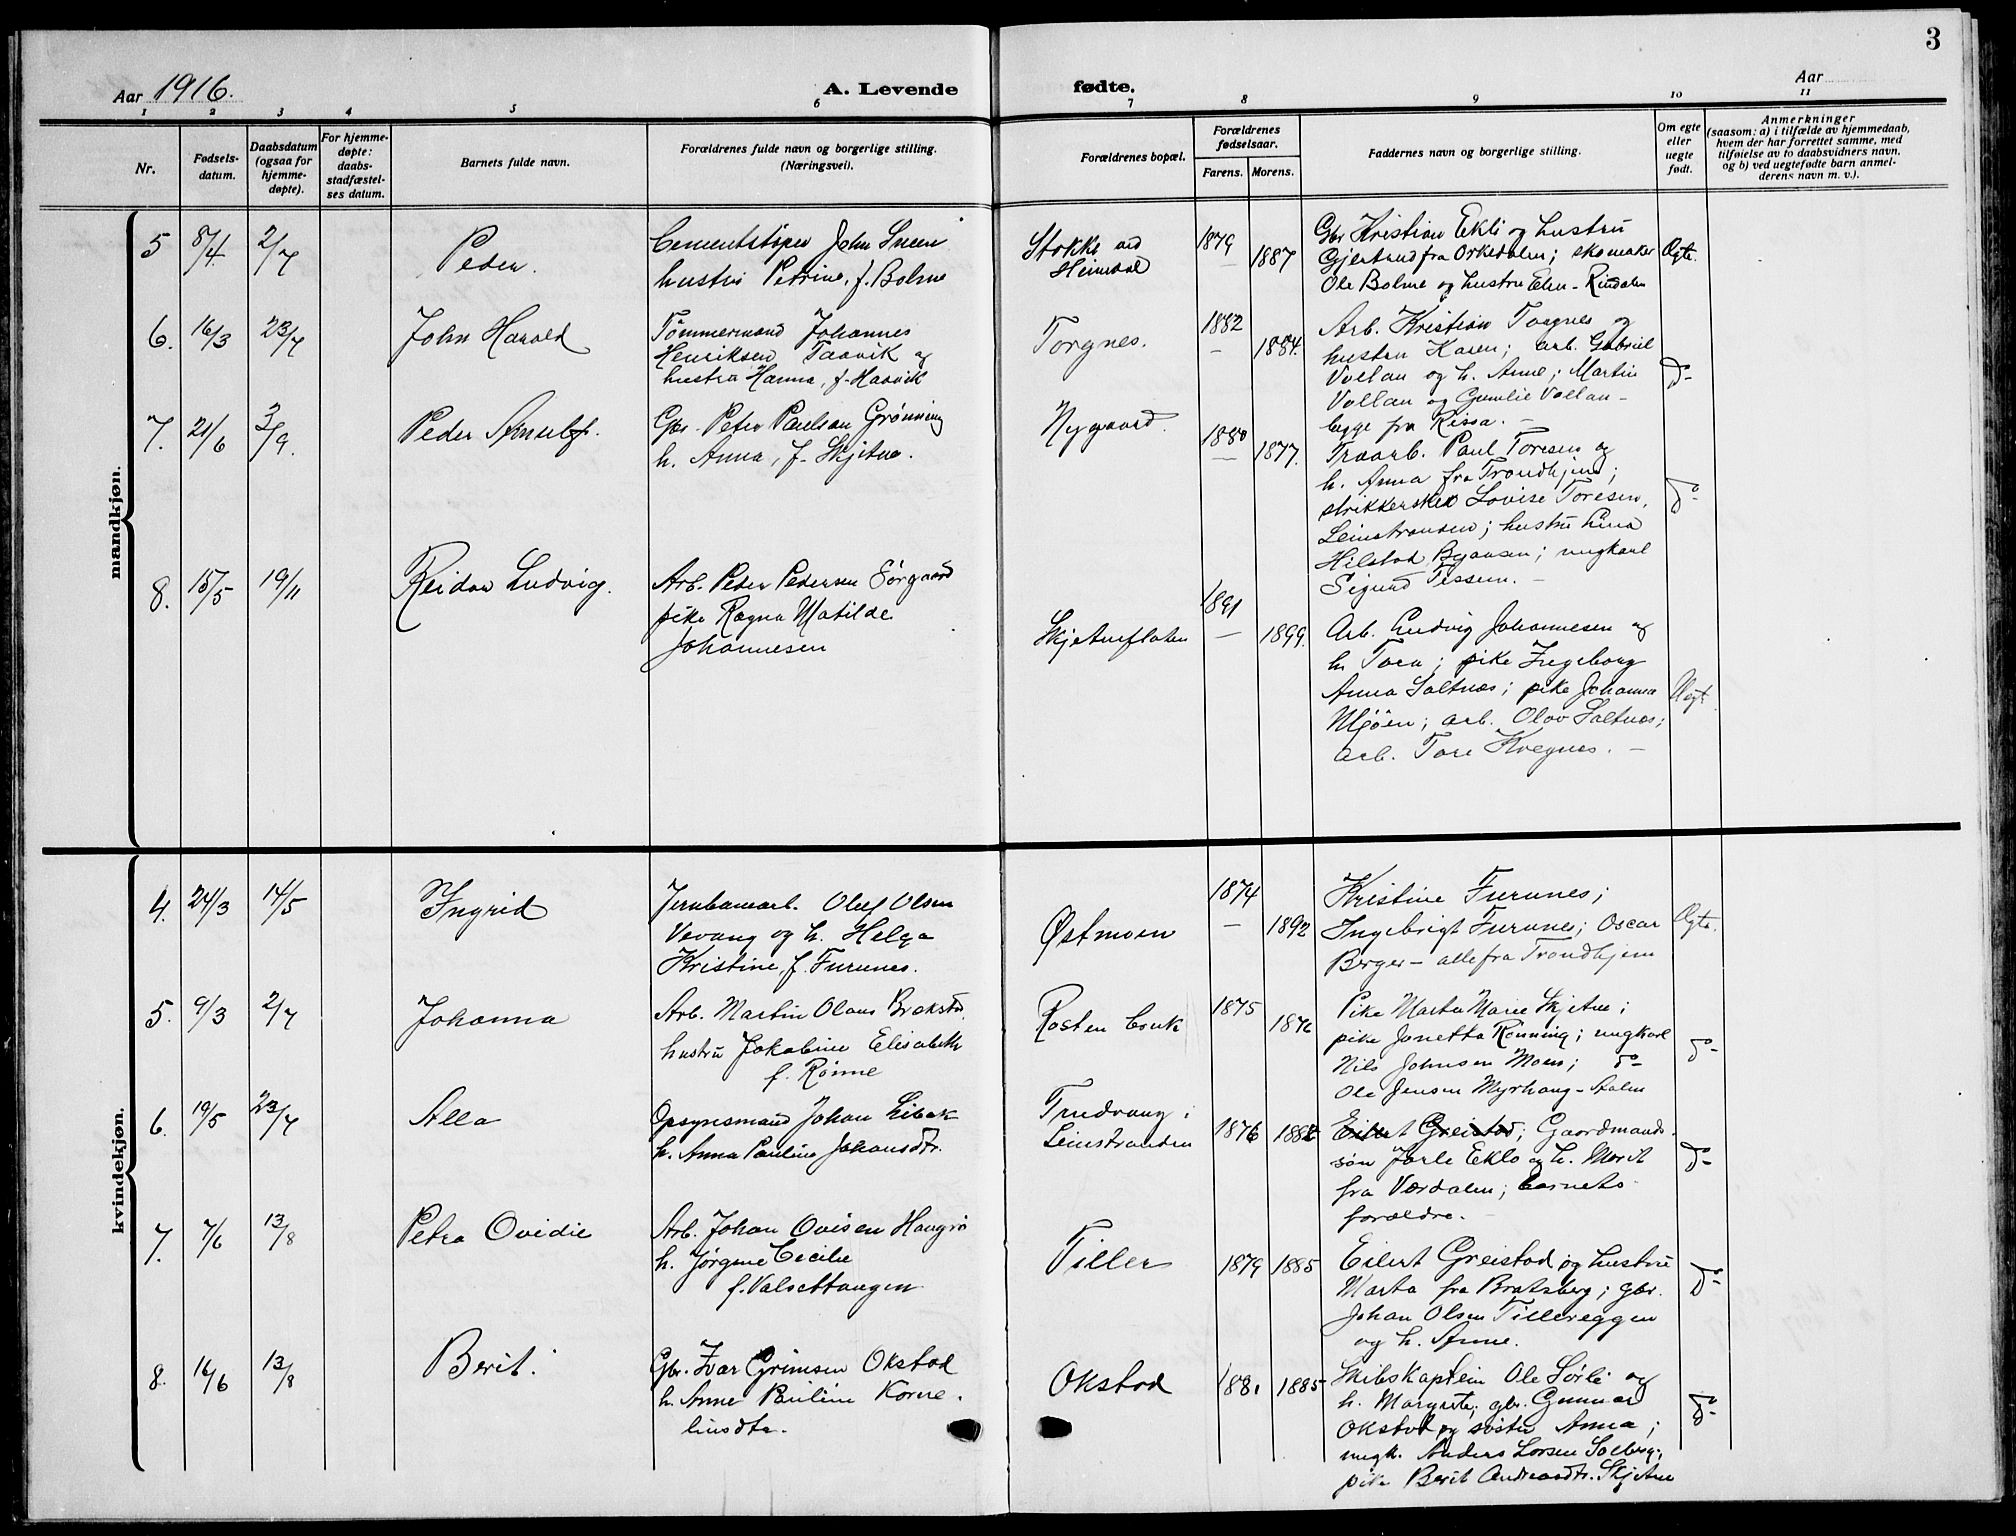 3
Aar 1916.
A. Levende fødte.
Aar
1 2 3 4 5 6 7 8 9 10 11
Nr.
Fødsels-
datum.
Daabsdatum
(ogsaa for
hjemme-
døpte).
For hjemme-
døpte:
daabs-
stadfæstel-
ses datum.
Barnets fulde navn.
Forældrenes fulde navn og borgerlige stilling.
(Næringsvei).
Forældrenes bopæl.
Forældrenes
fødselsaar.
Farens. Morens.
Faddernes navn og borgerlige stilling.
Om egte
eller
uegte
født.
Anmerkninger
(saasom: a) i tilfælde av hjemmedaab,
hvem der har forrettet samme, med
tilføielse av to daabsvidners navn,
og b) ved uegtefødte barn anmel-
derens navn m. v.).
mandkjøn.
5 8/4 2/7 Peder.
Cementstøper John Sneen
hustru Petrine, f. Bolme
Stokke ved
Heimdal
1879 1887
Gbr Kristian Ekli og hustru
Gjertrud fra Orkedalen; skomaker
Ole Bolme og hustru Elen - Rindalen
Egte.
6. 16/3 23/7 John Harald
Tömmermand Johannes
Henriksen Taavik og
hustru Hanna, f. Haavik
Torgnes.
1882 - 1884.
Arb. Kristian Torgnes og
hustru Karen; arb. Gabriel
Vollan og h. Anne; Martin
Vollan og Gunelie Vollan -
begge fra Rissa. -
do-
7. 21/6 3/9. Peder Arnulf.
Gbr. Peter Paulsen Grønning
h. Anna, f. Skjetne.
Nygaard.
1880 - 1877.
Traarb. Paul Toresen og
h. Anna fra Trondhjem;
strikkerske Lovise Toresen,
Leinstranden; hustru Lina
Hilstad, Byaasen; ungkarl
Sigurd Tessem. -
do-
8. 15/5 19/11 Reidar Ludvig.
Arb. Peder Pedersen Sörgaard
pike Ragna Matilde
Johannesen
Skjetneflaten
1891 - 1899.
Arb. Ludvig Johannesen og
h. Tora; pike Ingeborg
Anna Saltnes; pike Johanna
Mjöen; arb. Olav Saltnes;
arb. Tore Kregnes. -
Uegt.
kvindekjøn.
4. 24/3 14/5 Ingrid
Jernbanearb. Oluf Olsen
Vevang og h. Helga
Kristine, f. Furunes.
Østmoen
1874 - 1892
Kristine Furunes;
Ingebrigt Furunes; Oscar
Berger - alle fra Trondhjem
Egte.
5. 9/3 2/7 Johanna
Arb. Martin Olaus Brekstad
hustru Jakobine Elisabeth
f. Rönne
Rosten bruk
1875 1876
Pike Marta Marie Skjetne;
pike Jonetta Rønning; ungkarl
Nils Johnsen Moen; do-
Ole Jensen Myrhaug - Aalen
do-
6. 19/5 23/7 Alla
Opsynsmand Johan Libak
h. Anna Pauline Johansdtr.
Trudvang i
Leinstranden
1876 1882
Eilert Greistad; Gaardmands-
søn Jarle Eklo og h. Marit
fra Værdalen; barnets
forældre. -
do-
7. 7/6 13/8 Petra Ovidie
Arb. Johan Ovisen Haugrö
h. Jørgine Cecilie
f. Valsettangen
Tiller
1879 1885
Eilert Greistad og hustru
Marta fra Bratsberg; gbr.
Johan Olsen Tillereggen
og h. Anne.
do-
8. 16/6 13/8 Berit.
Gbr. Ivar Grimsen Okstad
h. Anne Pauline Korne-
liusdtr.
Okstad
1881 1885
Skibskaptein Ole Sörli og
h. Margrete; gbr. Gunnar
Okstad og søster Anna;
ungk. Anders Larsen Solberg;
pike Berit Andreasdtr. Skjetne
do-